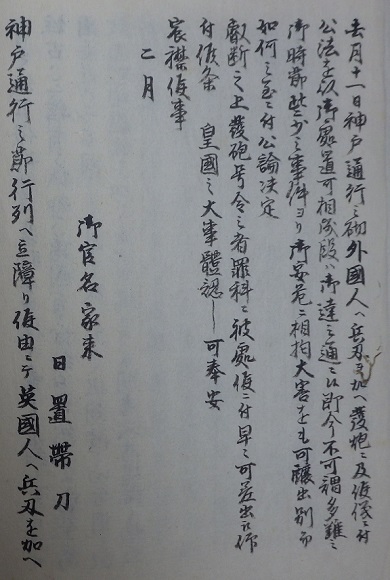 去月十一日神戸通行之砌外國人へ兵刃ヲ加へ發炮ニ及候儀ニ付
公法を以御處置可相成段ハ御達之通ニ候即今不可謂多難之
御時節些少之事件ヨリ御安危ニ相拘大害をも可醸出別而
如何之至ニ付公論決定
叡断之上發砲号令之者罪科ニ被處候ニ付早々可差出候
付候条　皇國之大事體認し可奉安
宸襟候事
二月
御官名家来
日置帶刀
神戸通行之節行列へ立障り候由ニテ英國人へ兵刃を加へ